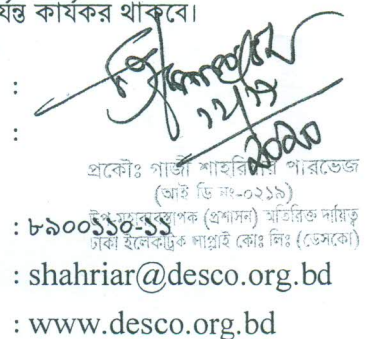 র্যন্ত কার্যকর থাকবে।
:
১২/১৯
:
২০২০
প্রকৌঃ গাজী শাহরিয়ার পারভেজ
(আই ডি নং-০২১৯)
উপ-মহাব্যবস্থাপক (প্রশাসন) অতিরিক্ত দায়িত্ব
: ৮৯০০১১০-১১
ঢাকা ইলেকট্রিক সাপ্লাই কোঃ লিঃ (ডেসকো)
: shahriar@desco.org.bd
: www.desco.org.bd